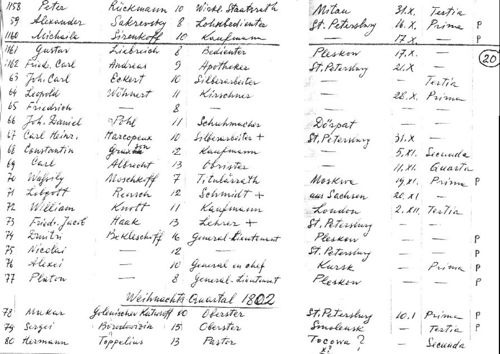 1158 Peter Rückmann 10 Wirkl. Staatsrath Mitau 31.X. Tertia
59 Alexander Sakrewsky 8 Lohnbedienter St. Petersburg 16.X. Prima P
1160 Michaila Sirenkoff 10 Kaufmann — 17.X. — P
1161 Gustav Liebreich 8 Bedienter Pleskow 17.X. —
1162 Fried. Carl Andreas 9 Apotheker St. Petersburg 21.X. —
63 Joh. Carl Eckert 10 Silberarbeiter — — Tertia
64 Leopold Wöhnert 11 Kirschner — 28.X. Prima
65 Friedrich — 8 — — — —
66 Joh. Daniel Pohl 11 Schuhmacher Dörpat — —
67 Carl Heinr. Marcopeus 10 Silberarbeiter + St. Petersburg 31.X. —
68 Constantin 12 Kaufmann — 5.XI. Secunda
69 Carl Albrecht 13 Obrister — 11.XI. Quarta
70 Wassily Moschkoff 7 Titulärrath Moskwa 19.XI. Prima P
71 Leopold Rensch 12 Schmidt + aus Sachsen 28.XI. —
72 William Knott 11 Kaufmann London 2.XII. Tertia
73 Fried. Jacob Haak 13 Lehrer + St. Petersburg — — P
74 Dmitri Bekleschoff 16 General-Lieutenant Pleskow — — P
75 Nicolai — 12 — St. Petersburg — — P
76 Alexei — 10 General en chef Kursk — Prima P
77 Platon — 8 General-Lieutenant Pleskow — — P
20
Weihnachts Quartal 1802
78 Mukar Golenischev Kutusoff 10 Oberster St. Petersburg 10.1 Prima P
79 Sergei 15 Oberster Smolensk — Tertia P
80 Hermann Töppelius 13 Pastor Tocowa ? — Secunda